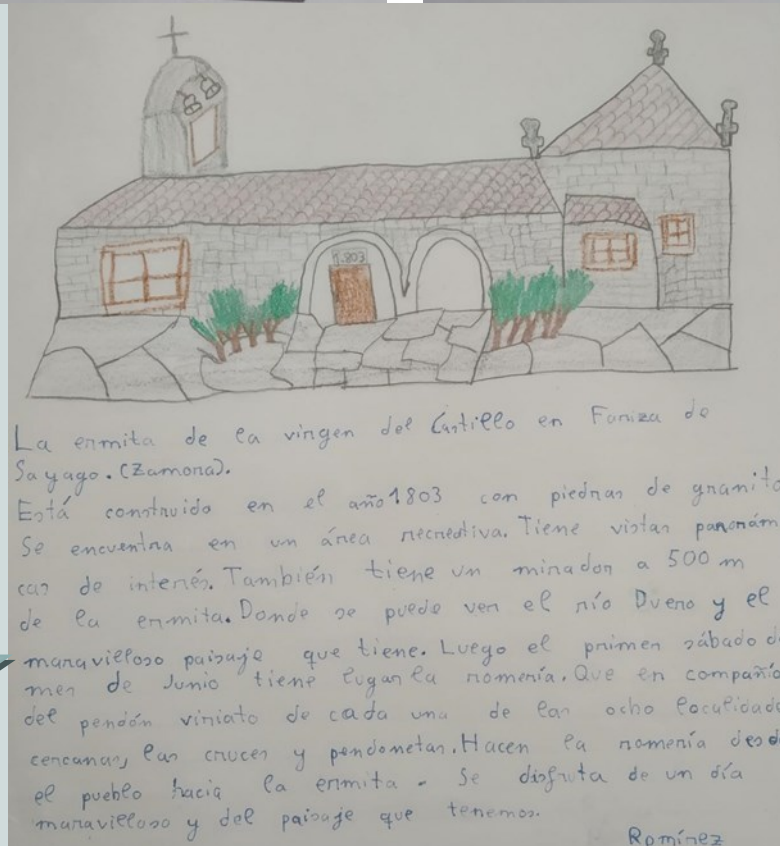 1.803
La ermita de la virgen del Castillo en Fariza de
Sayago. (Zamora).
Está construida en el año 1803 con piedras de granito
Se encuentra en un área recreativa. Tiene vistas panorám
cas de interés. También tiene un mirador a 500 m
de la ermita. Donde se puede ver el río Duero y el
maravilloso paisaje que tiene. Luego el primer sábado d
mes de Junio tiene lugar la romería. Que en compañía
del pendón viriato de cada una de las ocho localidade
cercanas, las cruces y pendonetas. Hacen la romería desd
el pueblo hacia la ermita. Se disfruta de un día
maravilloso y del paisaje que tenemos.
Romínez